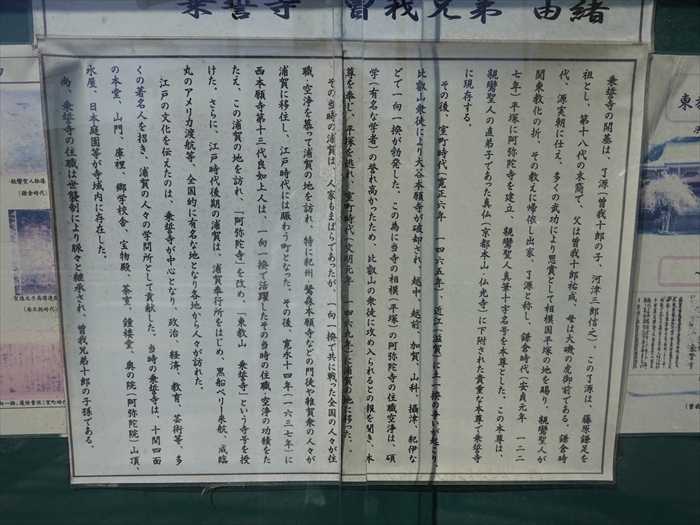 乗誓寺 曽我兄弟 由緒
乗誓寺の開基は、了源(曽我十郎の子、河津三郎信之)、この了源は、藤原鎌足を
祖とし、第十八代の末裔で、父は曽我十郎祐成、母は大磯の虎御前である。鎌倉時
代、源実朝に仕え、多くの武功により恩賞として相模国平塚の地を賜り、親鸞聖人が
関東教化の折、その教えに帰依し出家、了源と称し、鎌倉時代(安貞元年 一二二
七年)平塚に阿弥陀寺を建立、親鸞聖人真筆十字名号を本尊とした。この本尊は、
親鸞聖人の直弟子であった真仏(京都本山・仏光寺)に下附された貴重な本尊で乗誓寺
に現存する。
その後、室町時代(寛正六年 一四六五年)、近江(滋賀)に土一揆の争いが起こり、
比叡山衆徒により大谷本願寺が破却され、越中、越前、加賀、山科、摂津、紀伊な
どで一向一揆が勃発した。この為に当寺の相模(平塚)の阿弥陀寺の住職空浄は、碩
学(有名な学者)の誉れ高かったため、比叡山の衆徒に攻め入られるとの報を聞き、本
尊を奉じ、平塚を逃れ、室町時代(文明元年 一四六九年)に浦賀の地に移った。
その当時の浦賀は、人家もまばらであったが、一向一揆で共に戦った全国の人々が住
職、空浄を慕って浦賀の地を訪れ、特に紀州、鷺森本願寺などの門徒や雑賀衆の人々が
浦賀に移住し、江戸時代には賑わう町となった。その後、寛永十四年(一六三七年)に
西本願寺第十三代良如上人は、一向一揆で活躍したその当時の住職、空浄の功績をた
たえ、この浦賀の地を訪れ、「阿弥陀寺」を改め、「東教山 乗誓寺」という寺号を授
けた。さらに、江戸時代後期の浦賀は、浦賀奉行所をはじめ、黒船ペリー来航、咸臨
丸のアメリカ渡航等、全国的に有名な地となり各地から人々が訪れた。
江戸の文化を伝えたのは、乗誓寺が中心となり、政治、経済、教育、芸術等、多
くの著名人を招き、浦賀の人々の学問所として貢献した。当時の乗誓寺は、十間四面
の本堂、山門、庫裡、郷学校舎、宝物殿、茶室、鐘楼堂、奥の院(阿弥陀院)山頂、
氷屋、日本庭園等が寺域内に存在した。
尚、乗誓寺の住職は世襲制により脈々と継承され、曽我兄弟十郎の子孫である。